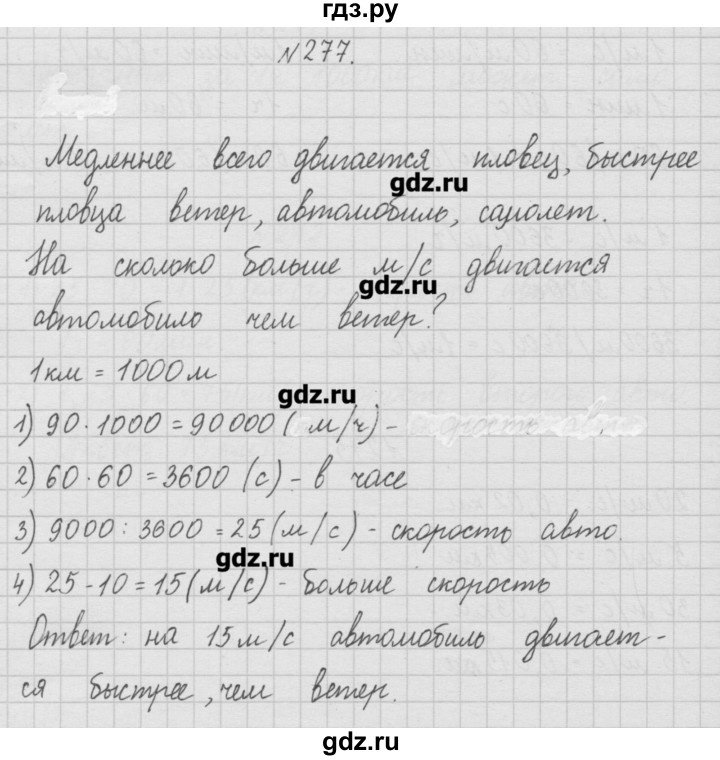 гдз.ру
№277.
Медленнее всего двигается пловец, быстрее
gdz.ru
пловца ветер, автомобиль, самолет.
На сколько больше м/с двигается
gdz.ru
автомобило чем ветер?
1км = 1000м
gdz.ru
1) 90·1000=90000( м/ч)-
2) 60·60=3600 (с)- в часе
3) 9000:3600=25(м/с)- скорость авто.
gdz.ru
4) 25-10=15(м/с)- больше скорость
Ответ: на 15м/с автомобиль двигает-
ся быстрее, чем ветер.
gdz.ru